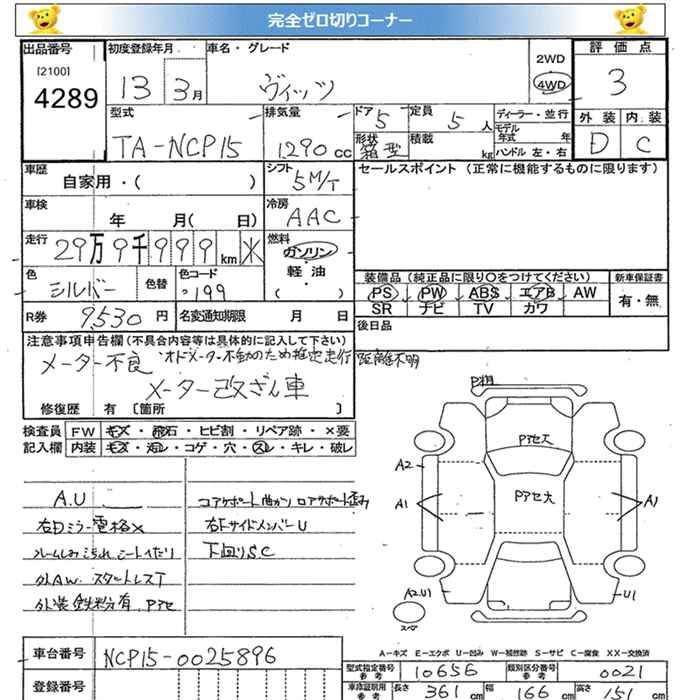 完全ゼロ切りコーナー
出品番号
[2100]
4289
初度登録年月
13 3月
車名・グレード
ヴィッツ
2WD
4WD
評価点
3
外装 内装
D C
型式
TA-NCP15
排気量
1290 cc
ドア 5
形状 箱型
定員 5 人
積載 kg
ディーラー・並行
モデル年式 年
ハンドル 左・右
車歴
自家用・( )
シフト
5M/T
セールスポイント (正常に機能するものに限ります)
車検
年 月( 日)
冷房
AAC
走行
29万9千999km
燃料
ガソリン
・
軽油
・
( )
色
シルバー
色替
色コード
199
装備品(純正品に限り〇をつけてください)
PS PW ABS エアB AW
SR ナビ TV カワ
新車保証書
有・無
R券 9530円
名変通知期限 月 日
後日品
注意事項申告欄(不具合内容等は具体的に記入して下さい)
メーター不良 オドメーター不動のため推定走行距離不明
メーター改ざん車
修復歴 有 〔箇所 〕
検査員
記入欄
FW キズ・飛石・ヒビ割・リペア跡・×要
内装 キズ・汚レ・コゲ・穴・スレ・キレ・破レ
A.U
右ドミラー電格×
フレームしみこち汚れ シートイたり
外AW スタートレスT
外装鉄粉有 Pアセ
コアサポート曲がり ロアサポート歪み
右Fサイドメンバー U
下回りSC
P担
Pアセ大
Pアセ大
A2
A1
A1
A2U1
U1
スペア
A-キズ E-エクボ U-凹み W-補修跡 S-サビ C-腐食 XX-交換済
車台番号
NCP15-0025896
登録番号
型式指定番号 参考
10656
類別区分番号 参考
0021
車庫証明用 参考
長さ 361 cm
幅 166 cm
高さ 151 cm